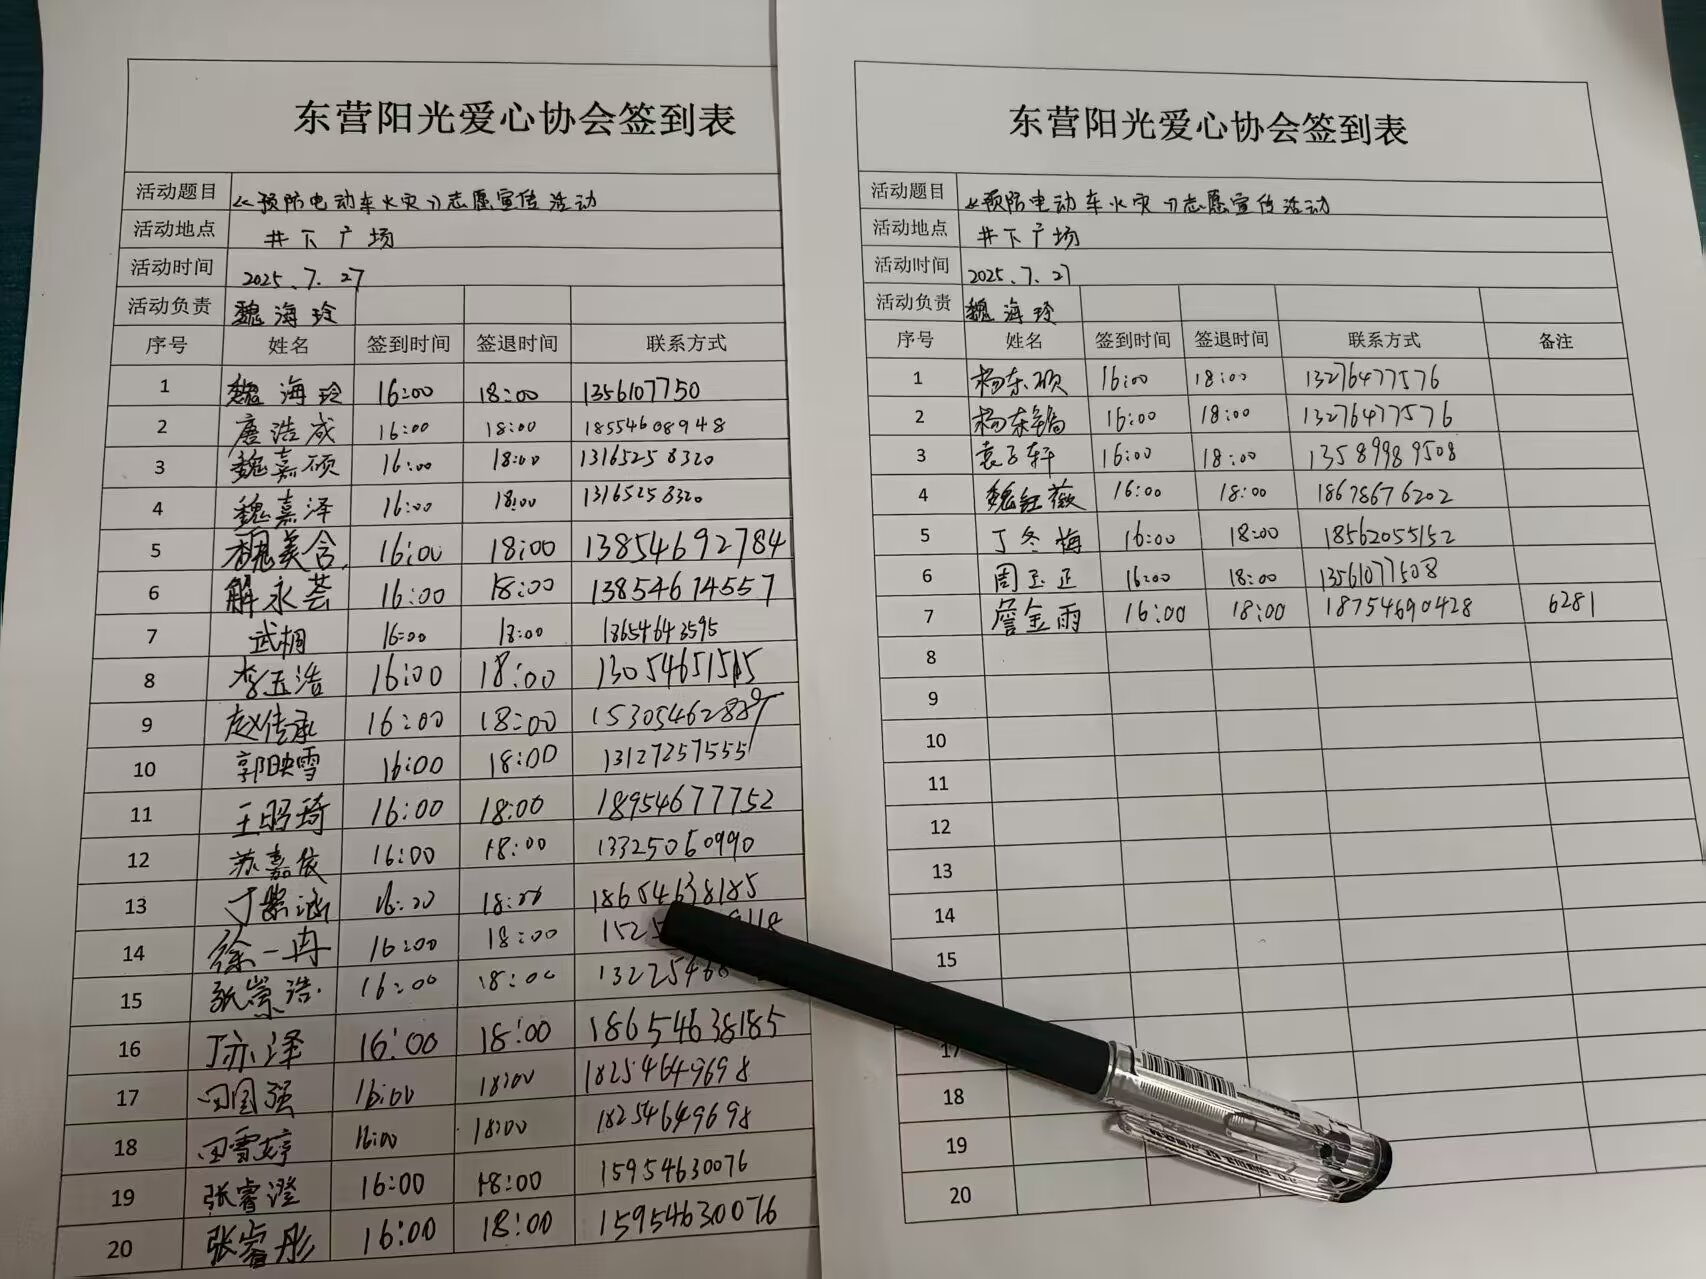 东营阳光爱心协会签到表
活动题目 《预防电动车火灾》志愿宣传活动
活动地点 井下广场
活动时间 2025.7.27
活动负责 魏海玲
序号 姓名 签到时间 签退时间 联系方式
1 魏海玲 16:00 18:00 1356107750
2 唐浩成 16:00 18:00 18554608948
3 魏嘉硕 16:00 18:00 13165258320
4 魏嘉泽 16:00 18:00 13165258320
5 魏美含 16:00 18:00 13854692784
6 解永荟 16:00 18:00 13854674557
7 武桐 16:00 18:00 18654643595
8 李玉浩 16:00 18:00 13054651515
9 赵传承 16:00 18:00
10 郭映雪 16:00 18:00 13127257555
11 王昭琦 16:00 18:00 18954677752
12 苏嘉依 16:00 18:00 13325060990
13 丁紫涵 16:00 18:00 18654638185
14 徐一冉 16:00 18:00
15 张崇浩 16:00 18:00
16 丁亦泽 16:00 18:00 18654638185
17 田国强 16:00 18:00 18254649698
18 田雪婷 16:00 18:00 18254649698
19 张睿澄 16:00 18:00 15954630076
20 张睿彤 16:00 18:00 15954630076
东营阳光爱心协会签到表
活动题目 《预防电动车火灾》志愿宣传活动
活动地点 井下广场
活动时间 2025.7.27
活动负责 魏海玲
序号 姓名 签到时间 签退时间 联系方式 备注
1 杨东硕 16:00 18:00 13276477576
2 杨东锦 16:00 18:00 13276477576
3 袁子轩 16:00 18:00 13589989508
4 魏红薇 16:00 18:00 18678676202
5 丁冬梅 16:00 18:00 18562055152
6 周玉正 16:00 18:00 13561077508
7 詹金雨 16:00 18:00 18754690428 6281
8
9
10
11
12
13
14
15
17
18
19
20